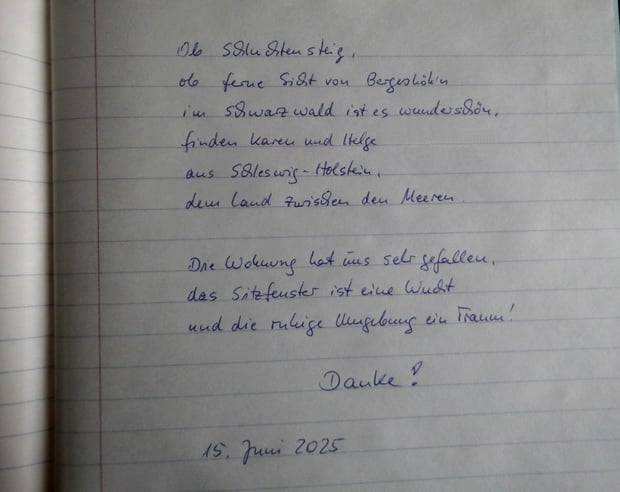 Ob Schluchtensteig,
ob ferne Sicht von Bergeshöh'n
im Schwarzwald ist es wunderschön,
finden Karen und Helge
aus Schleswig-Holstein,
dem Land zwischen den Meeren.
Die Wohnung hat uns sehr gefallen,
das Sitzfenster ist eine Wucht
und die ruhige Umgebung ein Traum!
Danke!
15. Juni 2025